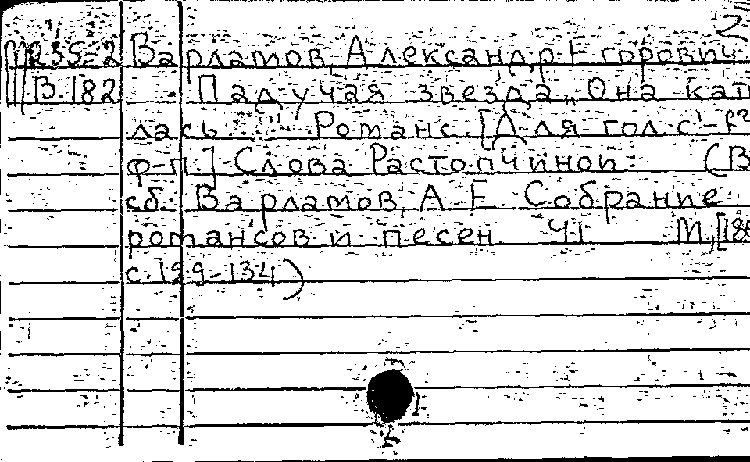 М235-2 Варламов, Александр Егорович
В.182 Падучая звезда „Она кати
лась..." Романс. [Для гол. с
ф-п.] Слова Растопчиной. (В
сб.: Варламов, А. Е. Собрание
романсов и песен. Ч1 М.,[18
с.129-134)